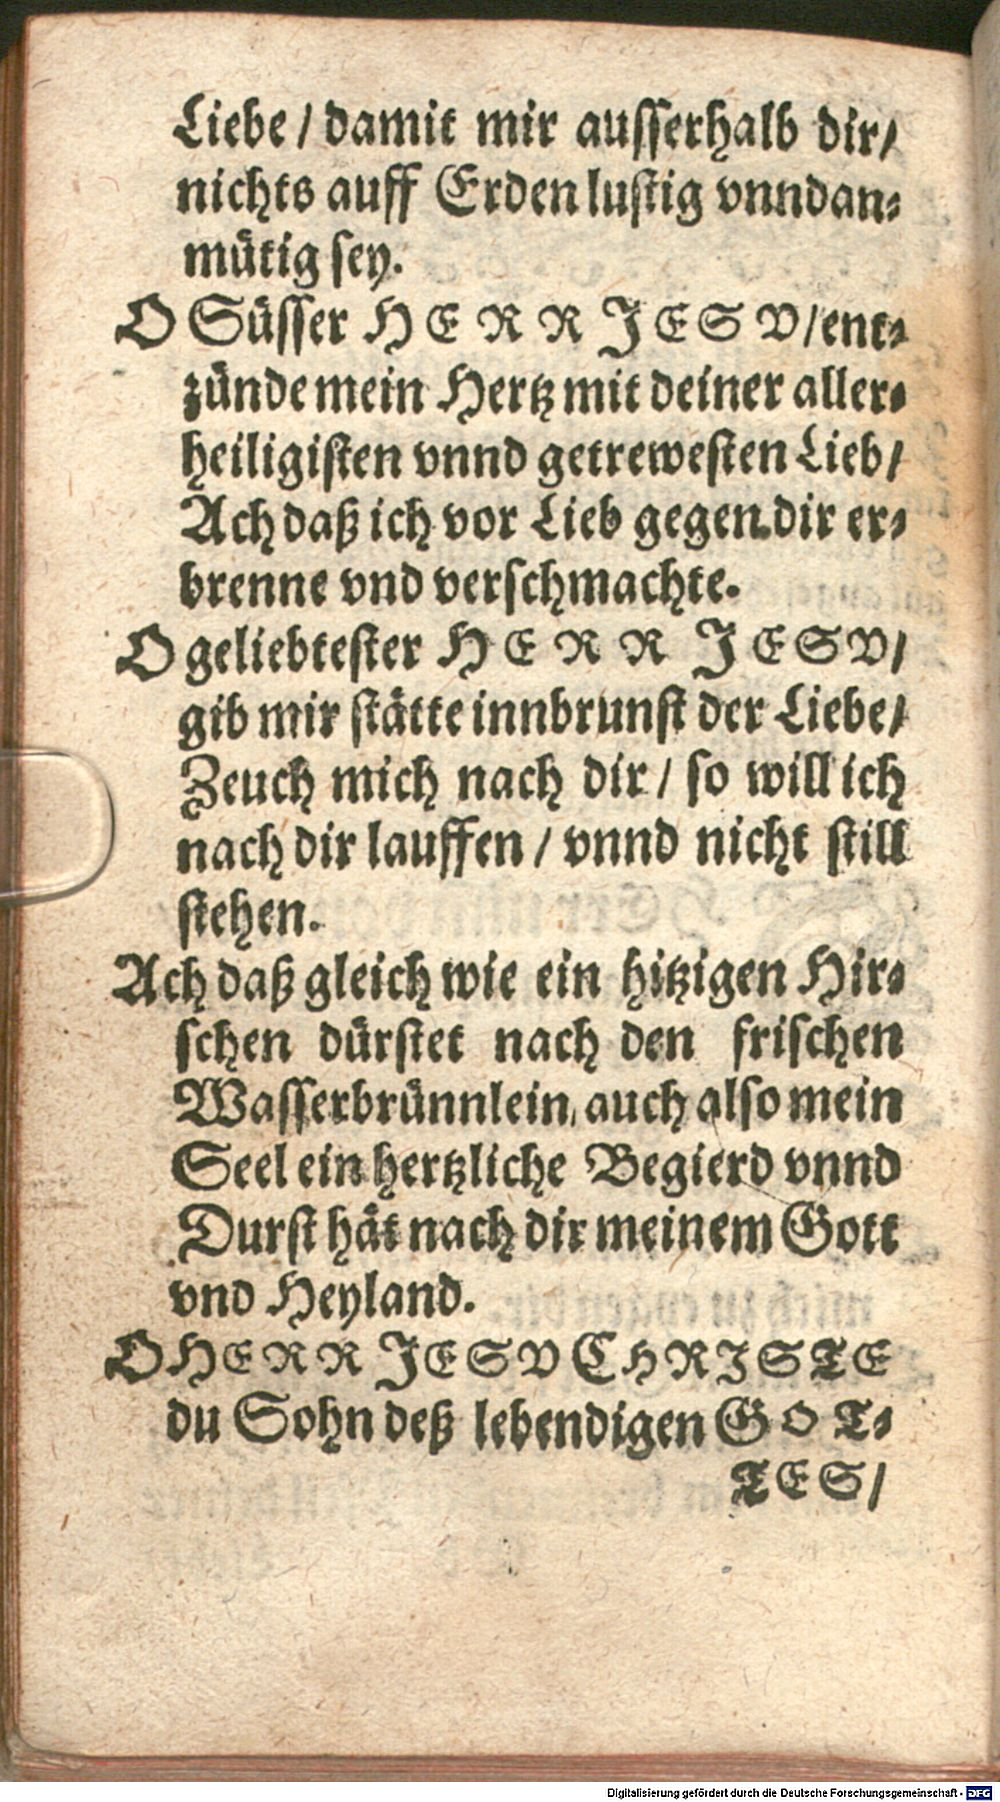 Liebe / damit mir ausserhalb dir/
nichts auff Erden lustig vnndan-
mütig sey.
O Süsser HERR JESV/ent-
zünde mein Hertz mit deiner aller-
heiligisten vnnd getrewesten Lieb/
Ach daß ich vor Lieb gegen dir er-
brenne vnd verschmachte.
O geliebtester HERR JESV/
gib mir stätte innbrunst der Liebe/
Zeuch mich nach dir / so will ich
nach dir lauffen / vnnd nicht still
stehen.
Ach daß gleich wie ein hitzigen Hir-
schen dürstet nach den frischen
Wasserbrünnlein, auch also mein
Seel ein hertzliche Begierd vnnd
Durst hät nach dir meinem Gott
vnd Heyland.
O HERR JESV CHRISTE
du Sohn deß lebendigen GOT-
TES/
Digitalisierung gefördert durch die Deutsche Forschungsgemeinschaft - DFG